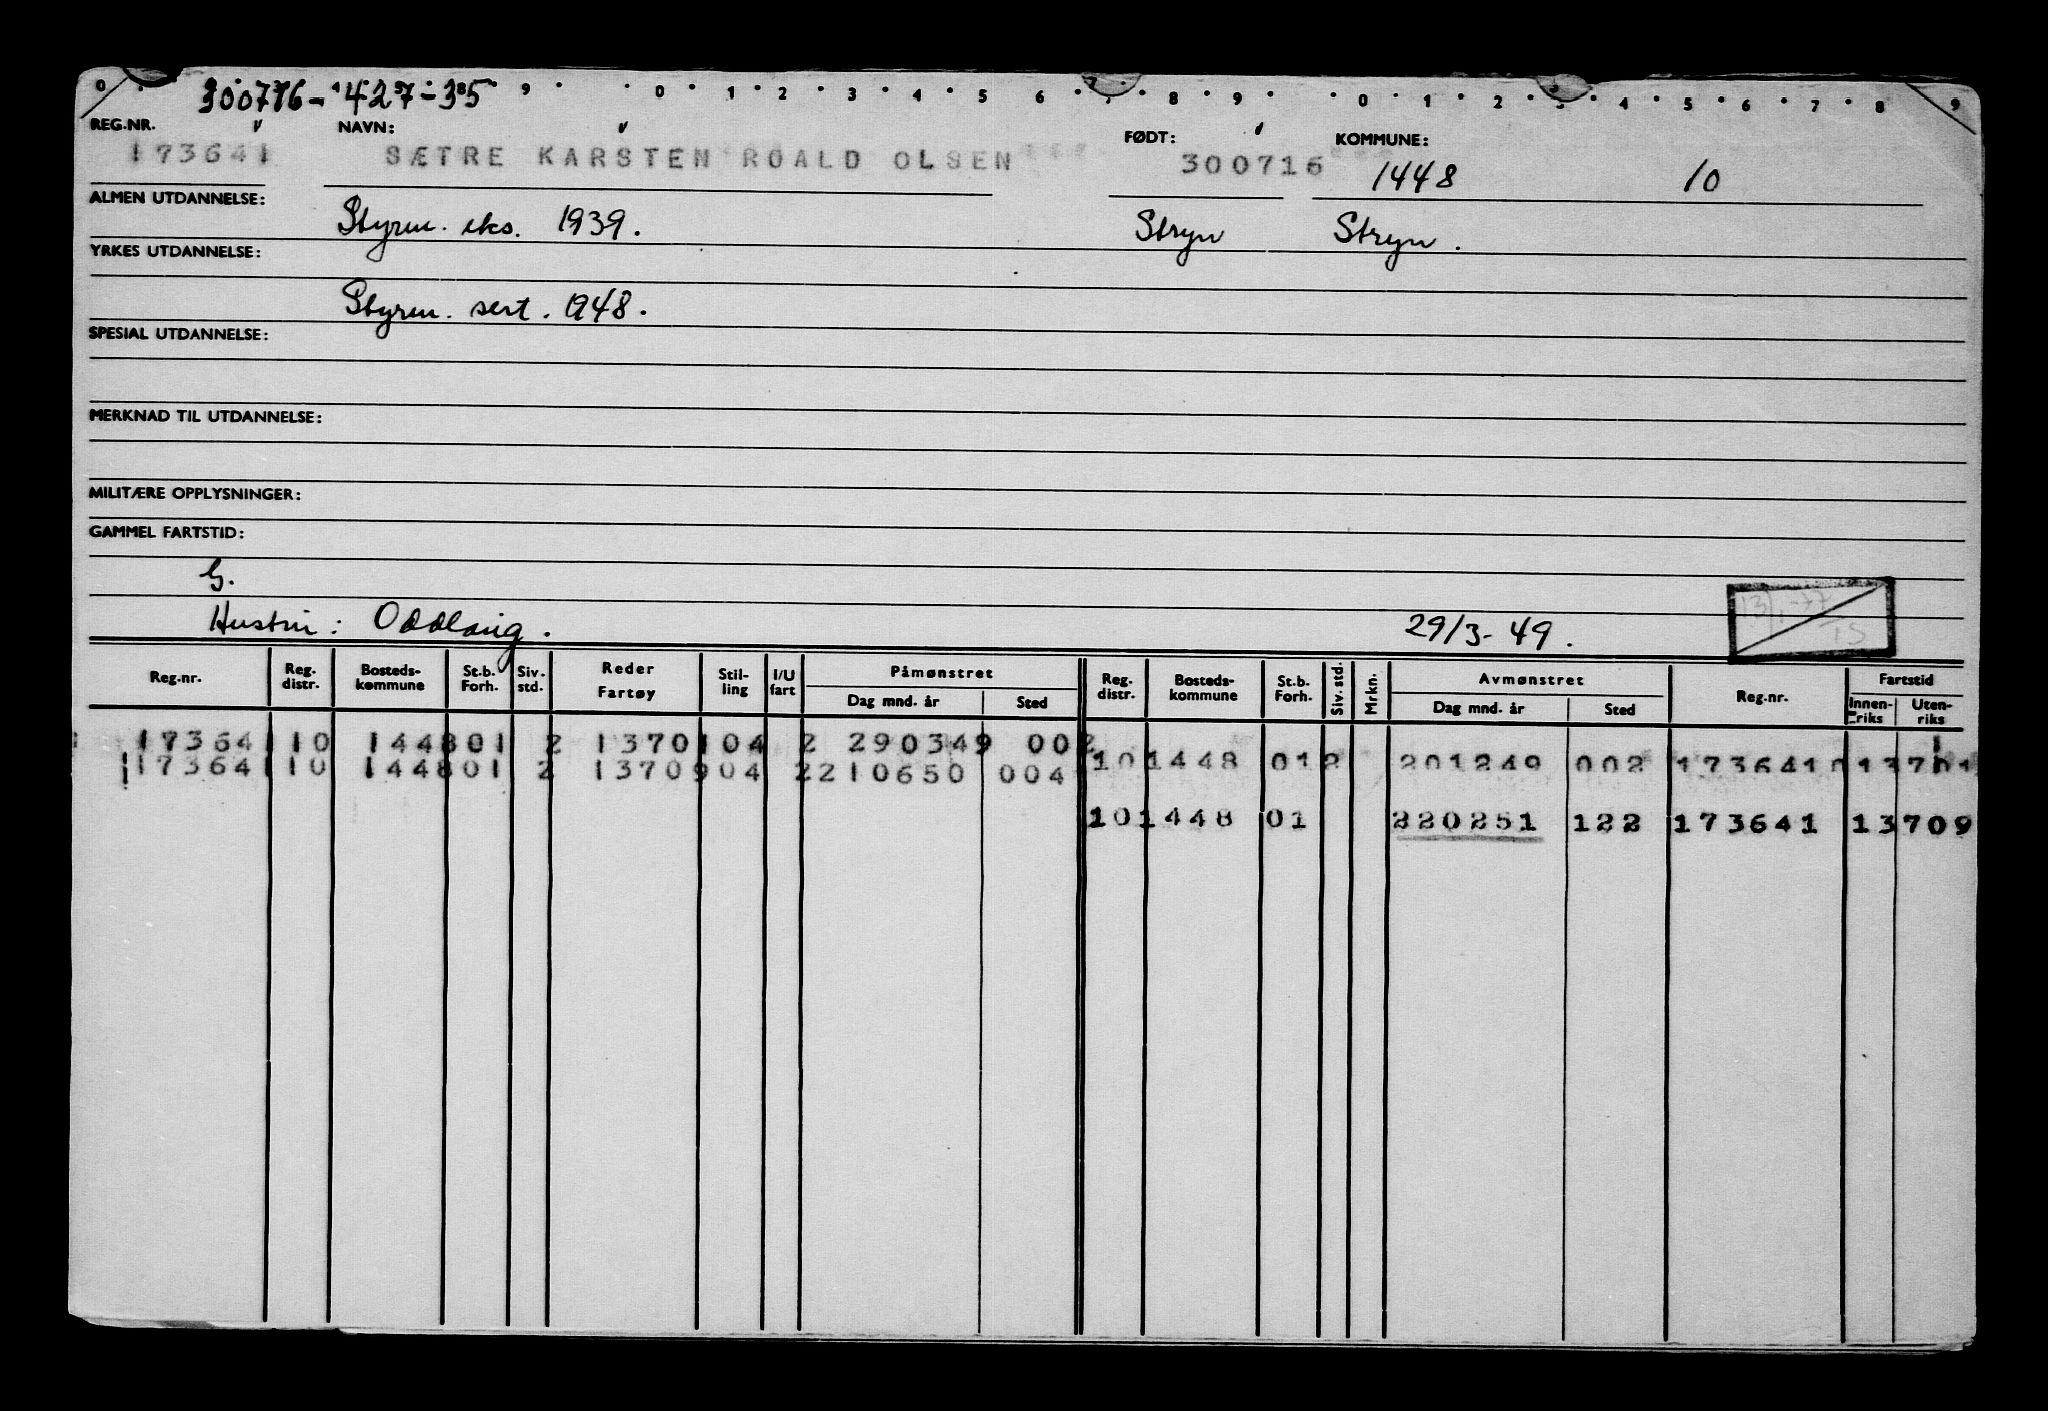 300716-427-35
0 9 0 1 2 3 4 5 6 7 8 9 0 1 2 3 4 5 6 7 8 9
REG.NR. NAVN: FØDT: KOMMUNE:
173641 SÆTRE KARSTEN ROALD OLSEN 300716 1448 10
ALMEN UTDANNELSE: Styrm. eks. 1939. Stryn Stryn.
YRKES UTDANNELSE:
Styrm. sert. 1948.
SPESIAL UTDANNELSE:
MERKNAD TIL UTDANNELSE:
MILITÆRE OPPLYSNINGER:
GAMMEL FARTSTID:
G.
Hustru: Oddlaug. 29/3-49.
Reg.nr. Reg. distr. Bosteds-kommune St.b. Forh. Siv. std. Reder Fartøy Stil-ling I/U fart Påmønstret Dag mnd. år Sted Reg. distr. Bosteds-kommune St.b. Forh. Siv. std. Mrkn. Avmønstret Dag mnd. år Sted Reg.nr. Fartstid Innen-riks Uten-riks
173641 10 1448 01 2 13701 04 2 290349 002
10 1448 01 2 201249 002 173641 13701
173641 10 1448 01 2 13709 04 2 210650 004
10 1448 01 220251 122 173641 13709